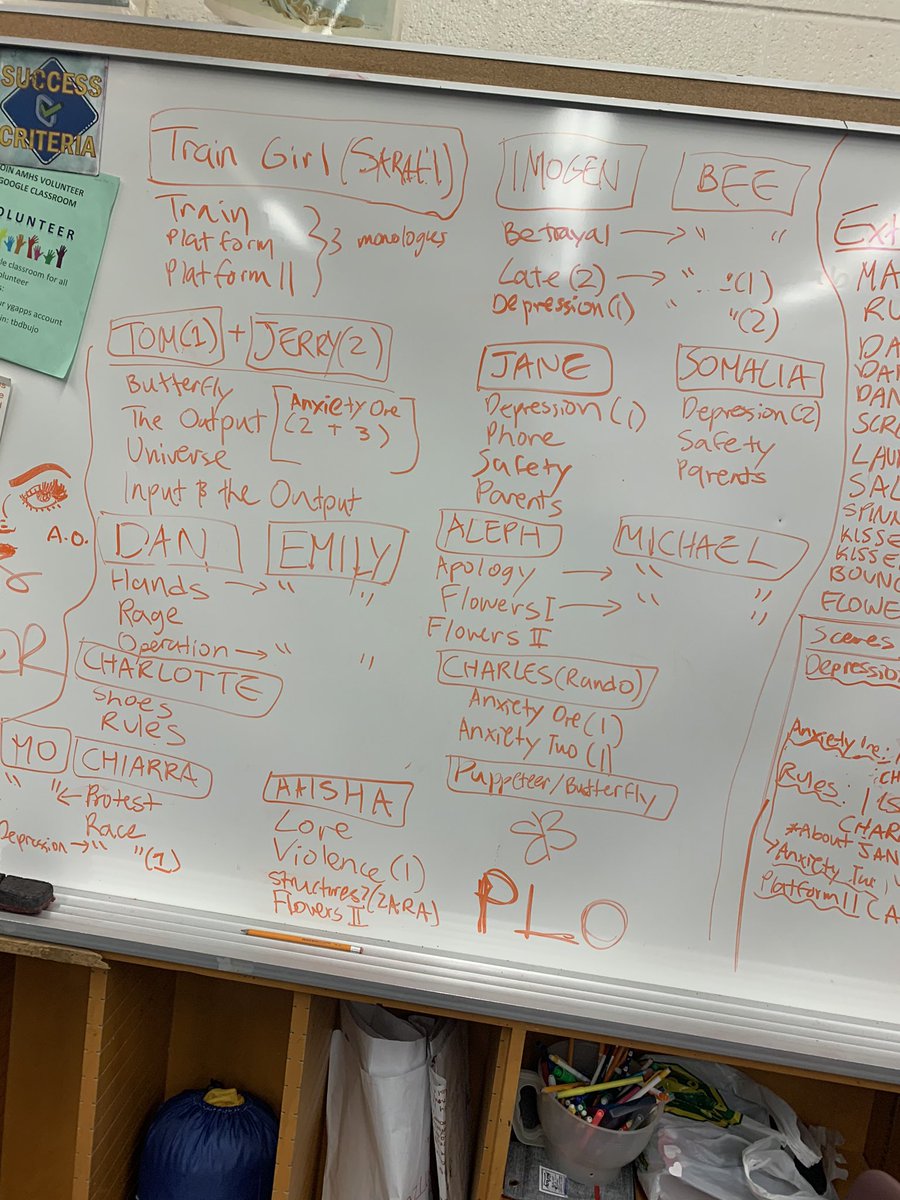 SUCCESS
CRITERIA
JOIN AMHS VOLUNTEER
GOOGLE CLASSROOM
VOLUNTEER
classroom for all
volunteer
ygapps account
in: tbdbujo
Train Girl (SARAH)
Train
Platform
Platform II
3 monologues
IMOGEN
BEE
Betrayal → " "
Late (2) → " " (1)
Depression (1) " " (2)
TOM (1) + JERRY (2)
Butterfly
The Output
Universe
Input & the Output
Anxiety One
(2 + 3)
JANE
Depression (1)
Phone
Safety
Parents
SOMALIA
Depression (2)
Safety
Parents
A.O.
DAN
EMILY
Hands → " "
Rage
Operation → " "
ALEPH
MICHAEL
Apology → " "
Flowers I → " "
Flowers II
CHARLOTTE
Shoes
Rules
CHARLES (Rando)
Anxiety One (1)
Anxiety Two (1)
Puppeteer/Butterfly
MO
CHIARRA
" " ← Protest
Race
Depression → " " (1)
AAISHA
Love
Violence (1)
Structures? (ZARA)
Flowers II
PLO
Ext
MA
RU
DA
DAN
SCR
LAU
SAL
SPINN
KISSE
KISSE
BOUNC
FLOWE
Scenes
Depression
Rules:
CHAR
*About JAN
Anxiety Two
Platform II (A